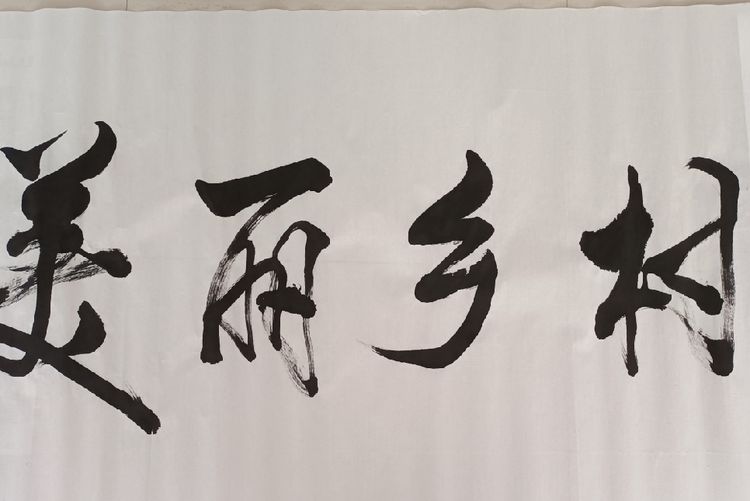 美丽乡村